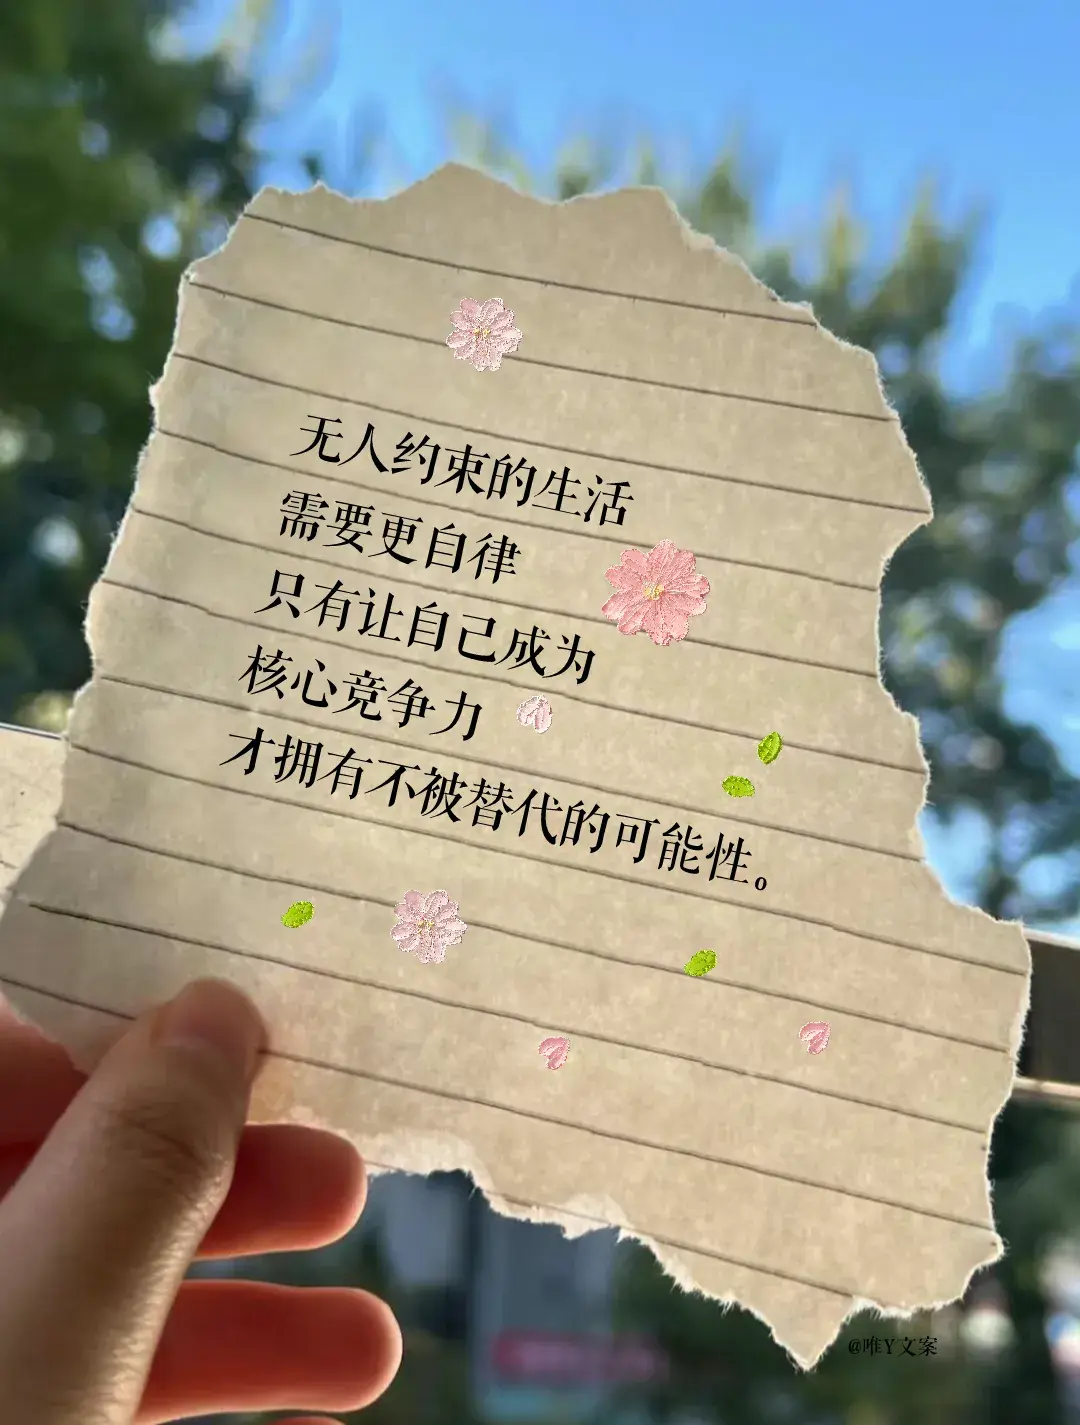 无人约束的生活
需要更自律
只有让自己成为
核心竞争力
才拥有不被替代的可能性。
@唯Y文案